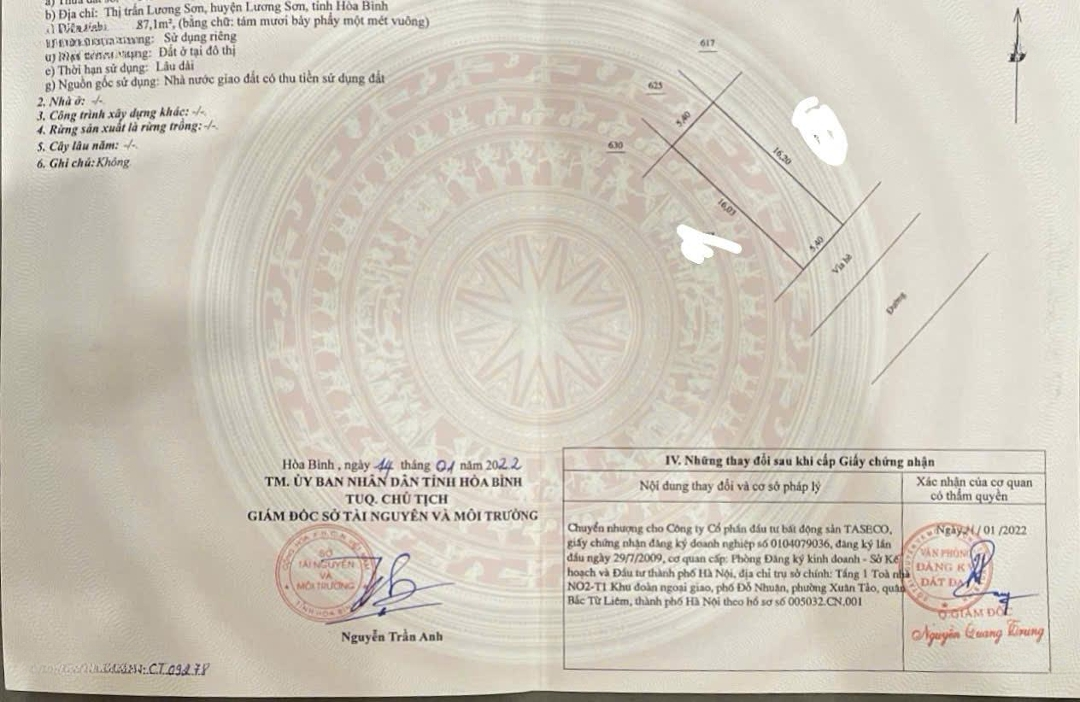 a) Thửa đất số
b) Địa chỉ: Thị trấn Lương Sơn, huyện Lương Sơn, tỉnh Hòa Bình
87,1m², (bằng chữ: tám mươi bảy phẩy một mét vuông)
Sử dụng riêng
Đất ở tại đô thị
e) Thời hạn sử dụng: Lâu dài
g) Nguồn gốc sử dụng: Nhà nước giao đất có thu tiền sử dụng đất
2. Nhà ở: -/-
3. Công trình xây dựng khác: -/-.
4. Rừng sản xuất là rừng trồng: -/-.
5. Cây lâu năm: -/-.
6. Ghi chú: Không
617
625
630
5,40
16,20
16,03
5,40
Vỉa hè
Đường
Hòa Bình, ngày 14 tháng 01 năm 2022
TM. ỦY BAN NHÂN DÂN TỈNH HÒA BÌNH
TUQ. CHỦ TỊCH
GIÁM ĐỐC SỞ TÀI NGUYÊN VÀ MÔI TRƯỜNG
SỞ
TÀI NGUYÊN
VÀ
MÔI TRƯỜNG
TỈNH HÒA BÌNH
Nguyễn Trần Anh
CT 09278
IV. Những thay đổi sau khi cấp Giấy chứng nhận
Nội dung thay đổi và cơ sở pháp lý
Xác nhận của cơ quan
có thẩm quyền
Chuyển nhượng cho Công ty Cổ phần đầu tư bất động sản TASECO,
giấy chứng nhận đăng ký doanh nghiệp số 0104079036, đăng ký lần
đầu ngày 29/7/2009, cơ quan cấp: Phòng Đăng ký kinh doanh - Sở Kế
hoạch và Đầu tư thành phố Hà Nội, địa chỉ trụ sở chính: Tầng 1 Toà nhà
NO2-T1 Khu đoàn ngoại giao, phố Đỗ Nhuận, phường Xuân Tảo, quận
Bắc Từ Liêm, thành phố Hà Nội theo hồ sơ số 005032.CN.001
Ngày 21/01/2022
VĂN PHÒNG
ĐĂNG KÝ
ĐẤT ĐAI
GIÁM ĐỐC
Nguyễn Quang Trung